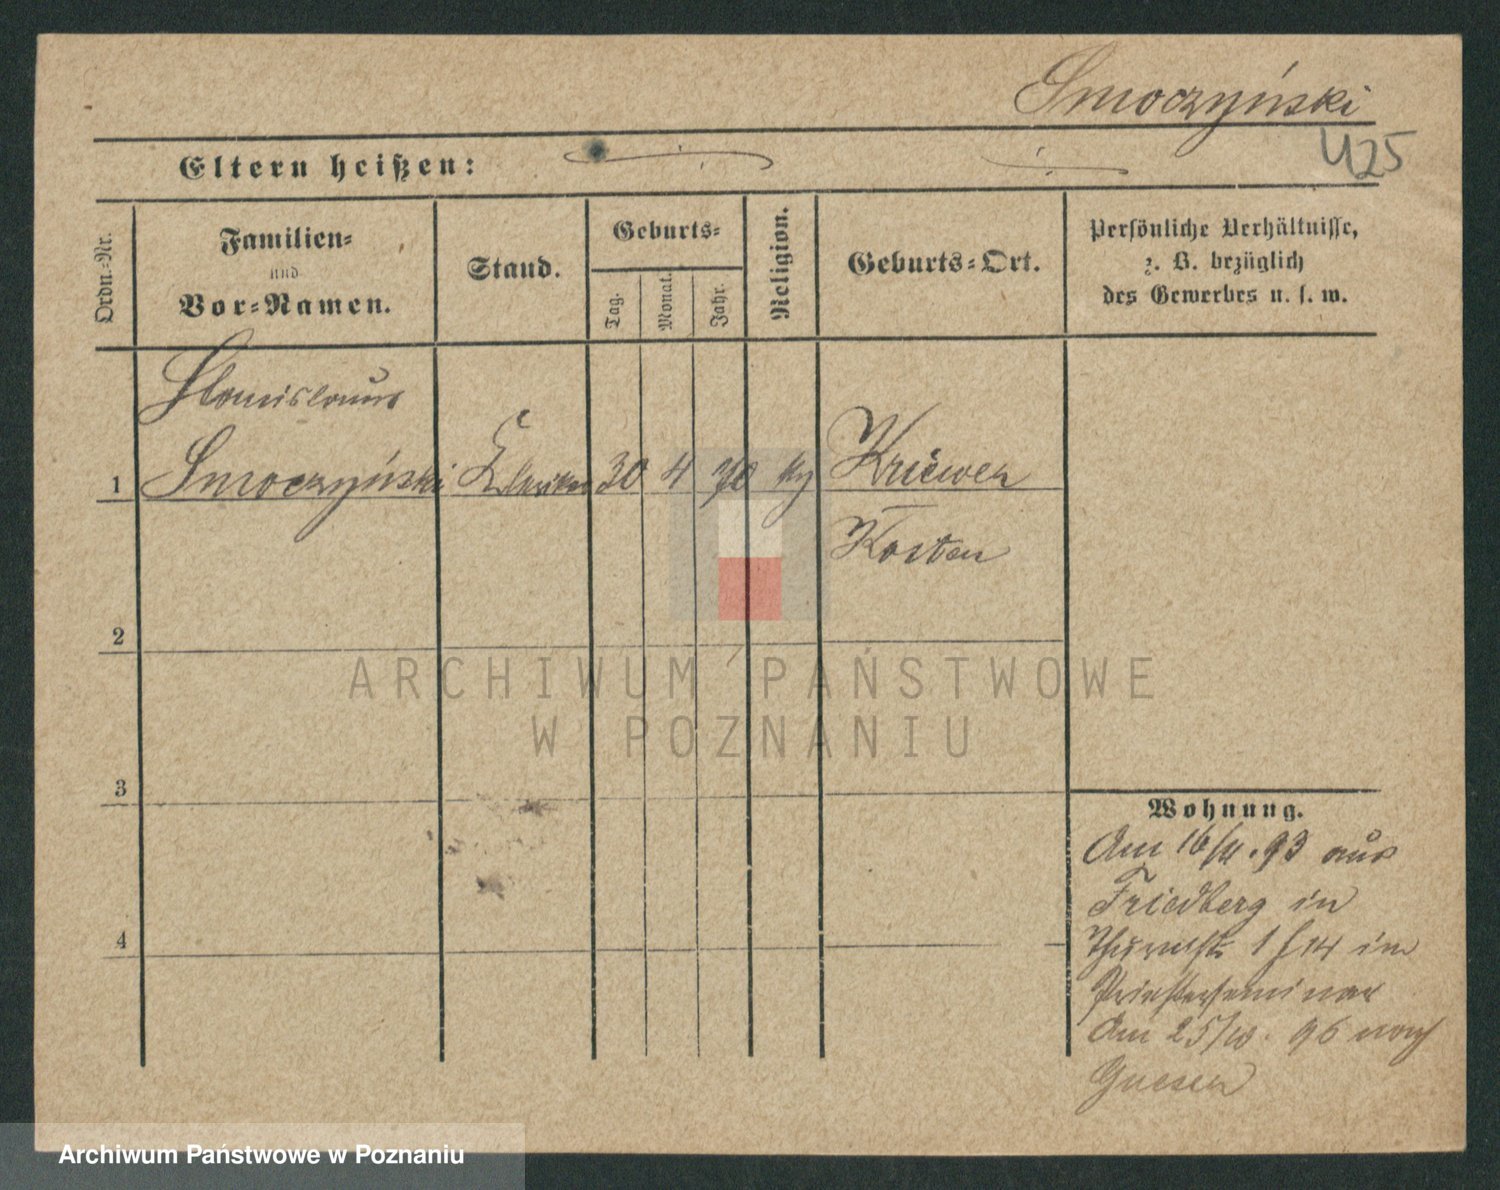 Smoczyński
425
Eltern heißen:
Ordn.-Nr.
Familien-
und
Vor-Namen.
Stand.
Geburts-
Tag.
Monat.
Jahr.
Religion.
Geburts-Ort.
Persönliche Verhältnisse,
z. B. bezüglich
des Gewerbes u. s. w.
Stanislaus
1 Smoczyński Kleriker 30 4 70 Kriewen
Kosten
2
3
4
Wohnung.
Am 16/4. 93 aus
Friedberg in
1 f 14 im
Priesterseminar
Am 25/10. 96 nach
Gnesen
ARCHIWUM PAŃSTWOWE
W POZNANIU
Archiwum Państwowe w Poznaniu